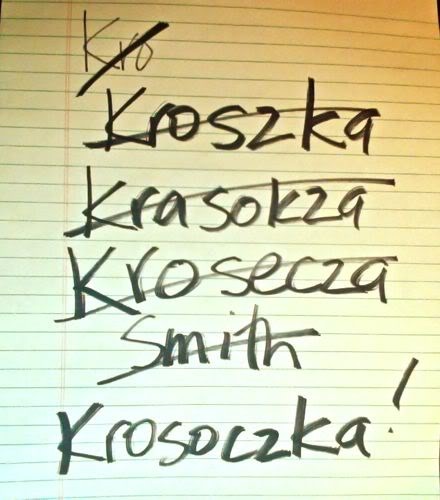 Kro
Kroszka
Krasokza
Krosecza
Smith
Krosoczka!